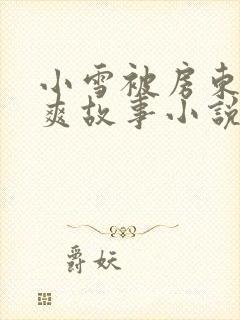 小雪被房东
爽故事小説
爵妖